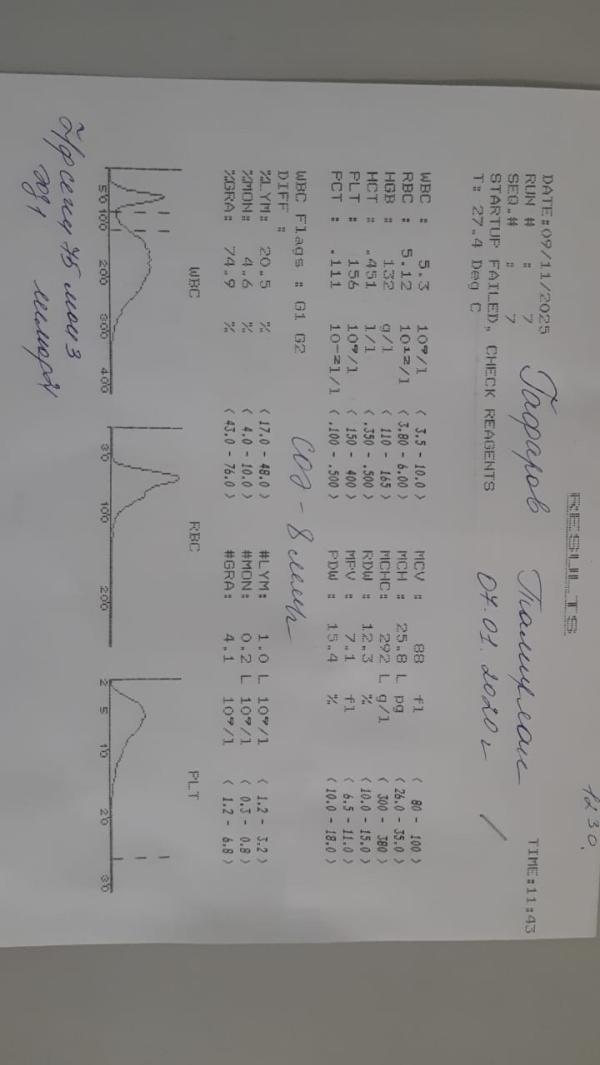 1230.
RESULTS
DATE:09/11/2025 TIME:11:43
RUN # : 7
SEQ.# : 7
STARTUP FAILED, CHECK REAGENTS
T: 27.4 Deg C
Гафаров Тамирлан
07.01.2020 г
WBC : 5.3 10⁹/l ( 3.5 - 10.0 ) MCV : 88 fl ( 80 - 100 )
RBC : 5.12 10¹²/l ( 3.80 - 6.00 ) MCH : 25.8 L pg ( 26.0 - 35.0 )
HGB : 132 g/l ( 110 - 165 ) MCHC: 292 L g/l ( 300 - 380 )
HCT : .451 l/l ( .350 - .500 ) RDW : 12.3 % ( 10.0 - 15.0 )
PLT : 156 10⁹/l ( 150 - 400 ) MPV : 7.1 fl ( 6.5 - 11.0 )
PCT : .111 10⁻²l/l ( .100 - .500 ) PDW : 15.4 % ( 10.0 - 18.0 )
WBC Flags : G1 G2
соэ - 8 мм/ч
DIFF :
%LYM: 20.5 % ( 17.0 - 48.0 ) #LYM: 1.0 L 10⁹/l ( 1.2 - 3.2 )
%MON: 4.6 % ( 4.0 - 10.0 ) #MON: 0.2 L 10⁹/l ( 0.3 - 0.8 )
%GRA: 74.9 % ( 43.0 - 76.0 ) #GRA: 4.1 10⁹/l ( 1.2 - 6.8 )
WBC RBC PLT
50 100 200 300 400 30 100 200 2 5 10 20 30
с/я